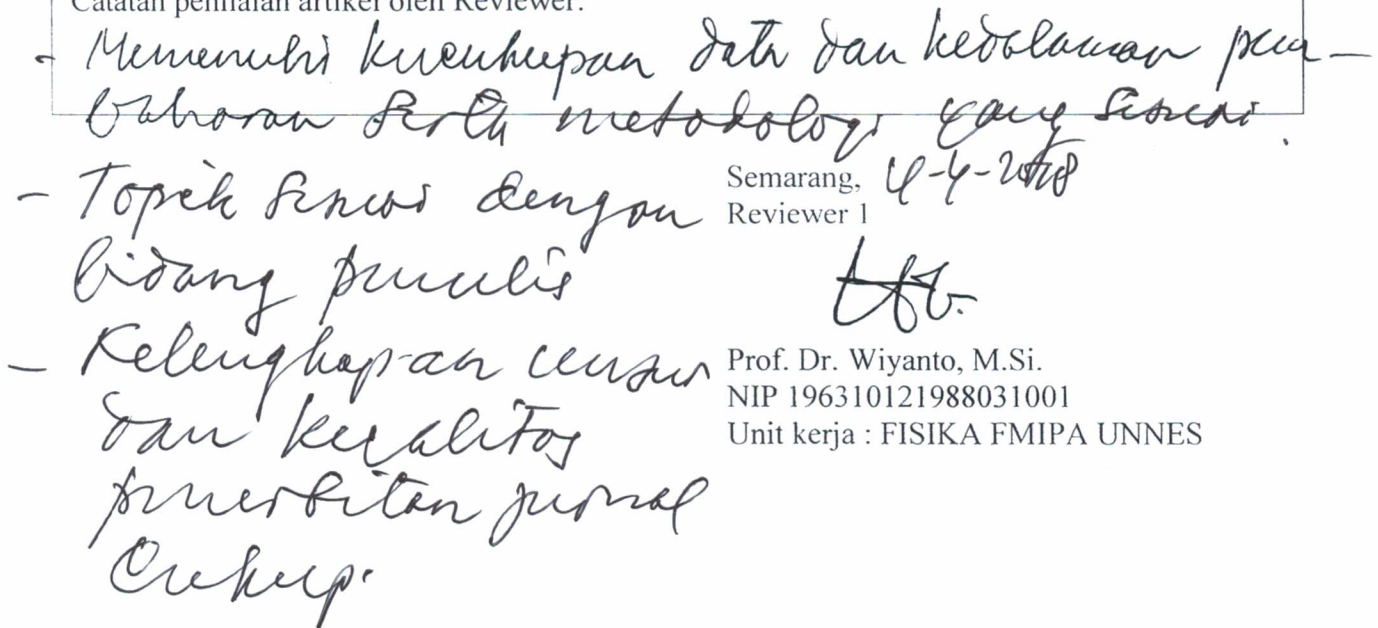 Catatan penilaian artikel oleh Reviewer:
- Memenuhi kecukupan data dan kedalaman pem-
bahasan serta metodologi yang sesuai.
- Topik sesuai dengan
bidang penulis
- Kelengkapan unsur
dan kualitas
penerbitan jurnal
Cukup.
Semarang, 4-4-2018
Reviewer 1
Prof. Dr. Wiyanto, M.Si.
NIP 196310121988031001
Unit kerja : FISIKA FMIPA UNNES